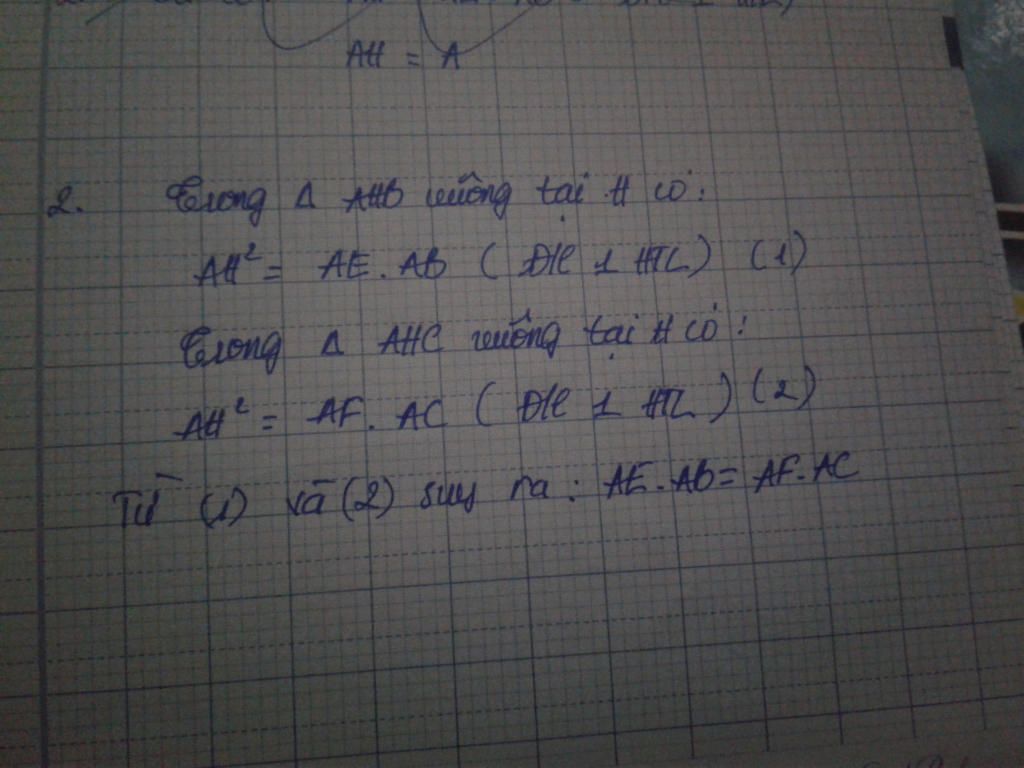 AH = A
2. Trong Δ AHB vuông tại H có:
AH² = AE. AB ( ĐL 1 HTL) (1)
Trong Δ AHC vuông tại H có:
AH² = AF. AC ( ĐL 1 HTL ) (2)
Từ (1) và (2) suy ra: AE.AB = AF.AC